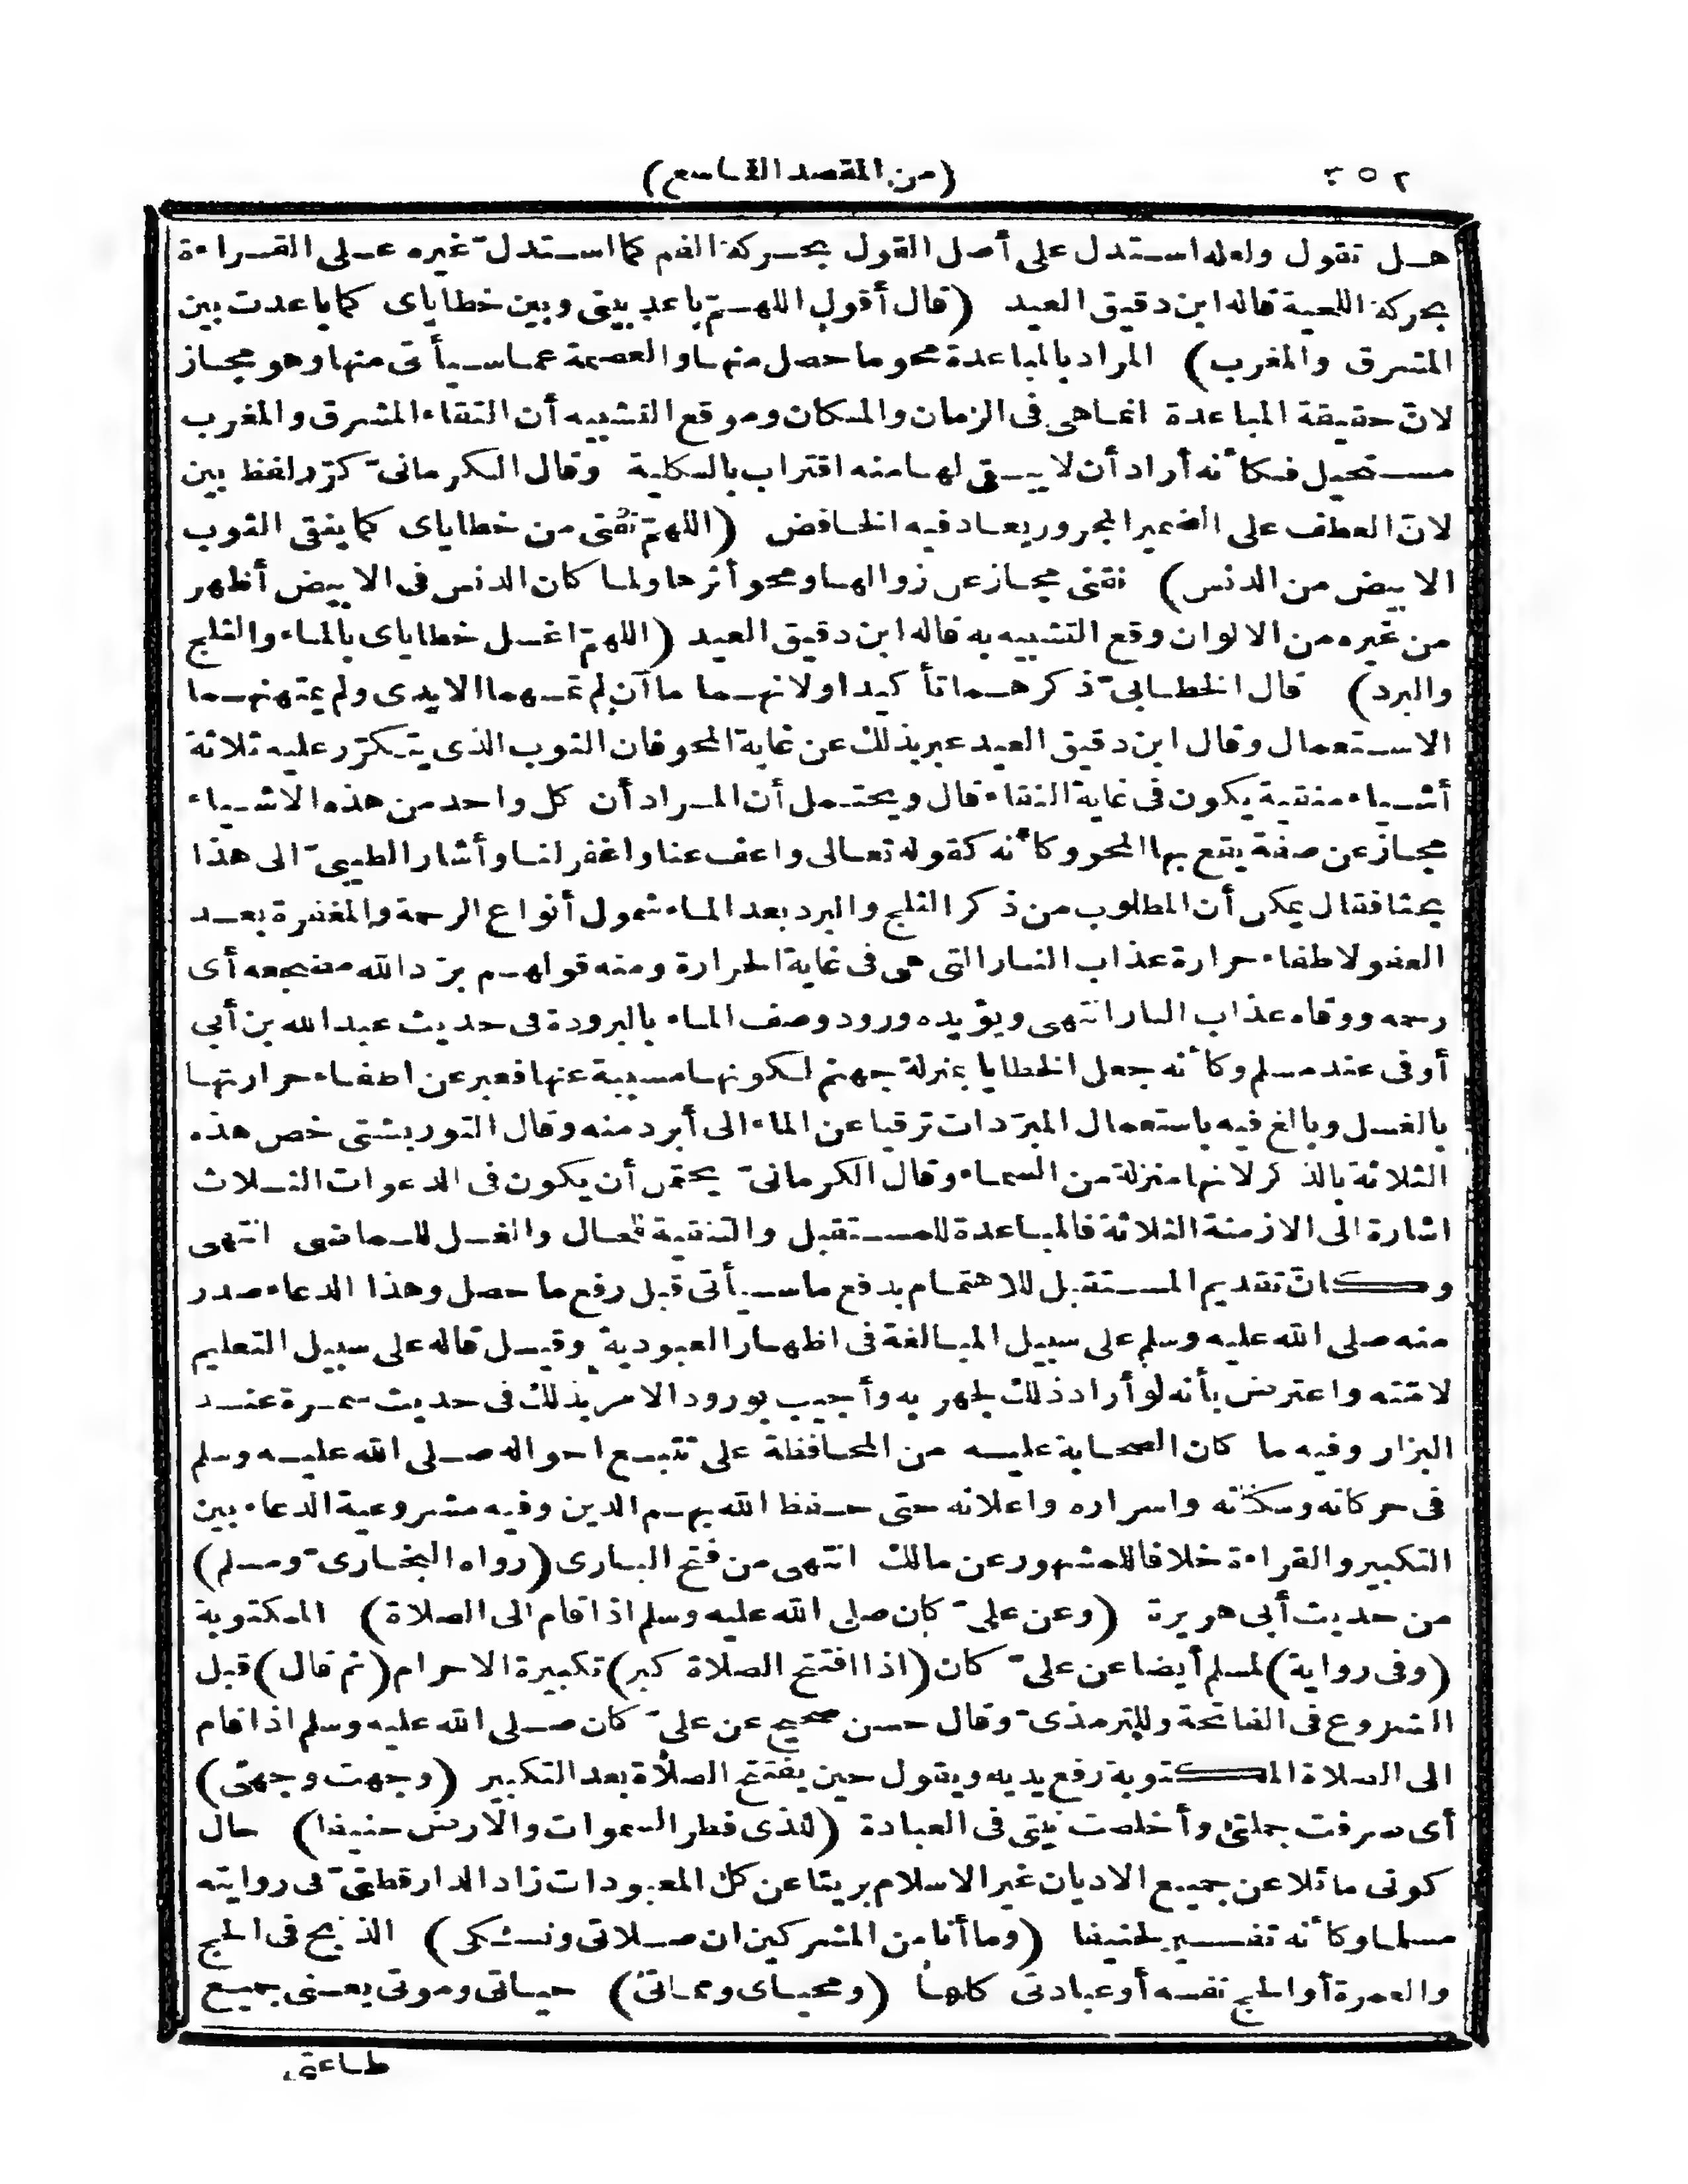 ٣٥٢ (من المقصد التاسع)
هل تقول ولعله استدل على أصل القول بحركة الفم كما استدل غيره على القراءة
بحركة اللحية قاله ابن دقيق العيد (قال أقول اللهمّ باعد بيني وبين خطاياى كما باعدت بين
المشرق والمغرب) المراد بالمباعدة محو ما حصل منها والعصمة عما سيأتى منها وهو مجاز
لانّ حقيقة المباعدة انما هى فى الزمان والمكان وموقع التشبيه أن التقاء المشرق والمغرب
مستحيل فكأنه أراد أن لا يبقى لها منه اقتراب بالكلية وقال الكرمانىّ كرّر لفظ بين
لانّ العطف على الضمير المجرور يعاد فيه الخافض (اللهمّ نقنى من خطاياى كما ينقى الثوب
الابيض من الدنس) نقنى مجاز عن زوالها ومحو أثرها ولما كان الدنس فى الابيض أظهر
من غيره من الالوان وقع التشبيه به قاله ابن دقيق العيد (اللهمّ اغسل خطاياى بالماء والثلج
والبرد) قال الخطابىّ ذكرهما تأكيدا ولانهما ما آن لم تمسهما الايدى ولم يمتهنهما
الاستعمال وقال ابن دقيق العيد عبر بذلك عن غاية المحو فان الثوب الذى يتكرّر عليه ثلاثة
أشياء منقية يكون فى غاية النقاء قال ويحتمل أن المراد أن كل واحد من هذه الاشياء
مجاز عن صفة يقع بها المحو وكأنه كقوله تعالى واعف عنا واغفر لنا وأشار الطيبىّ الى هذا
بحثا فقال يمكن أن المطلوب من ذكر الثلج والبرد بعد الماء شمول أنواع الرحمة والمغفرة بعد
العفو لاطفاء حرارة عذاب النار التى هى فى غاية الحرارة ومنه قولهم برّد الله مضجعه أى
رحمه ووقاه عذاب النار انتهى ويؤيده ورود وصف الماء بالبرودة فى حديث عبد الله بن أبى
أوفى عند مسلم وكأنه جعل الخطايا بمنزلة جهنم لكونها مسببة عنها فعبر عن اطفاء حرارتها
بالغسل وبالغ فيه باستعمال المبرّدات ترقيا عن الماء الى أبرد منه وقال التوربشتى خص هذه
الثلاثة بالذكر لانها منزلة من السماء وقال الكرمانىّ يحتمل أن يكون فى الدعوات الثلاث
اشارة الى الازمنة الثلاثة فالمباعدة للمستقبل والتنقية للحال والغسل للماضى انتهى
وكانّ تقديم المستقبل للاهتمام بدفع ما سيأتى قبل رفع ما حصل وهذا الدعاء صدر
منه صلى الله عليه وسلم على سبيل المبالغة فى اظهار العبودية وقيل قاله على سبيل التعليم
لامّته واعترض بأنه لو أراد ذلك لجهر به وأجيب بورود الامر بذلك فى حديث سمرة عند
البزار وفيه ما كان الصحابة عليه من المحافظة على تتبع احواله صلى الله عليه وسلم
فى حركاته وسكناته واسراره واعلانه حتى حفظ الله بهم الدين وفيه مشروعية الدعاء بين
التكبير والقراءة خلافا للمشهور عن مالك انتهى من فتح البارى (رواه البخارىّ ومسلم)
من حديث أبى هريرة (وعن علىّ كان صلى الله عليه وسلم اذا قام الى الصلاة) المكتوبة
(وفى رواية) لمسلم أيضا عن علىّ كان (اذا افتتح الصلاة كبر) تكبيرة الاحرام (ثم قال) قبل
الشروع فى الفاتحة وللترمذىّ وقال حسن صحيح عن علىّ كان صلى الله عليه وسلم اذا قام
الى الصلاة المكتوبة رفع يديه ويقول حين يفتتح الصلاة بعد التكبير (وجهت وجهى)
أى صرفت جملتى وأخلصت نيتى فى العبادة (للذى فطر السموات والارض حنيفا) حال
كونى مائلا عن جميع الاديان غير الاسلام بريئا عن كل المعبودات زاد الدارقطنىّ فى روايته
مسلما وكأنه تفسير لحنيفا (وما أنا من المشركين ان صلاتى ونسكى) الذبح فى الحج
والعمرة أو الحج نفسه أو عبادتى كلها (ومحياى ومماتى) حياتى وموتى يعنى جميع
طاعتى